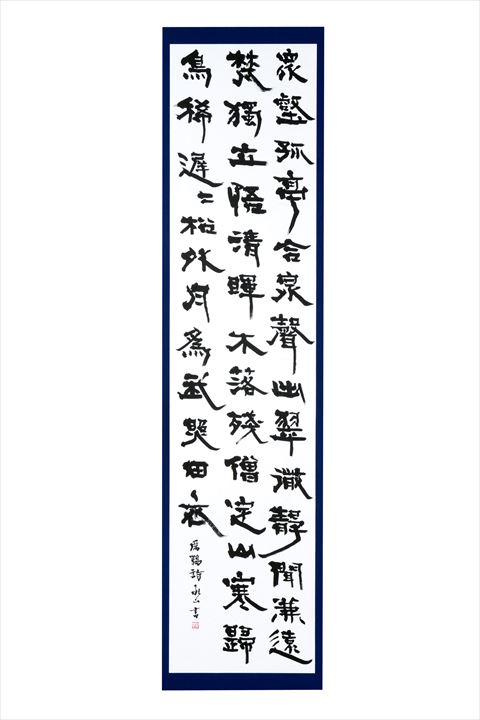 衆壑孤亭合泉聲出翠微靜聞兼遠
梵獨立悟清暉木落殘僧定山寒歸
鳥稀遲〻松外月爲我照田衣
厲鶚詩 書